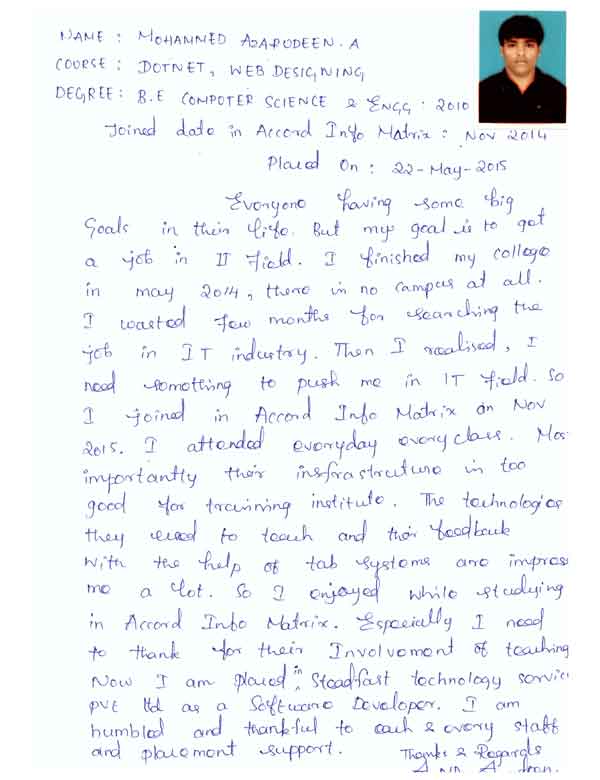 NAME : MOHAMMED AZARUDEEN. A
COURSE : DOTNET, WEB DESIGNING
DEGREE : B.E COMPUTER SCIENCE & ENGG. 2010
Joined date in Accord Info Matrix : Nov 2014
Placed On : 22-May-2015
Everyone having some big
Goals in their life. But my goal is to get
a job in IT Field. I finished my college
in may 2014, there is no campus at all.
I wasted few months for searching the
job in IT industry. Then I realised, I
need something to push me in IT field. So
I joined in Accord Info Matrix on Nov
2015. I attended everyday every class. Mos
importantly their insfrastruture is too
good for trainning institute. The technologies
they used to teach and their feedback
with the help of tab systems are impres
me a lot. So I enjoyed while studying
in Accord Info Matrix. Especially I need
to thank for their Involvement of teaching
Now I am placed in Steadfast technology servic
pvt ltd as a Software Developer. I am
humbled and thankful to each & every staff
and placement support. Thanks & Regards